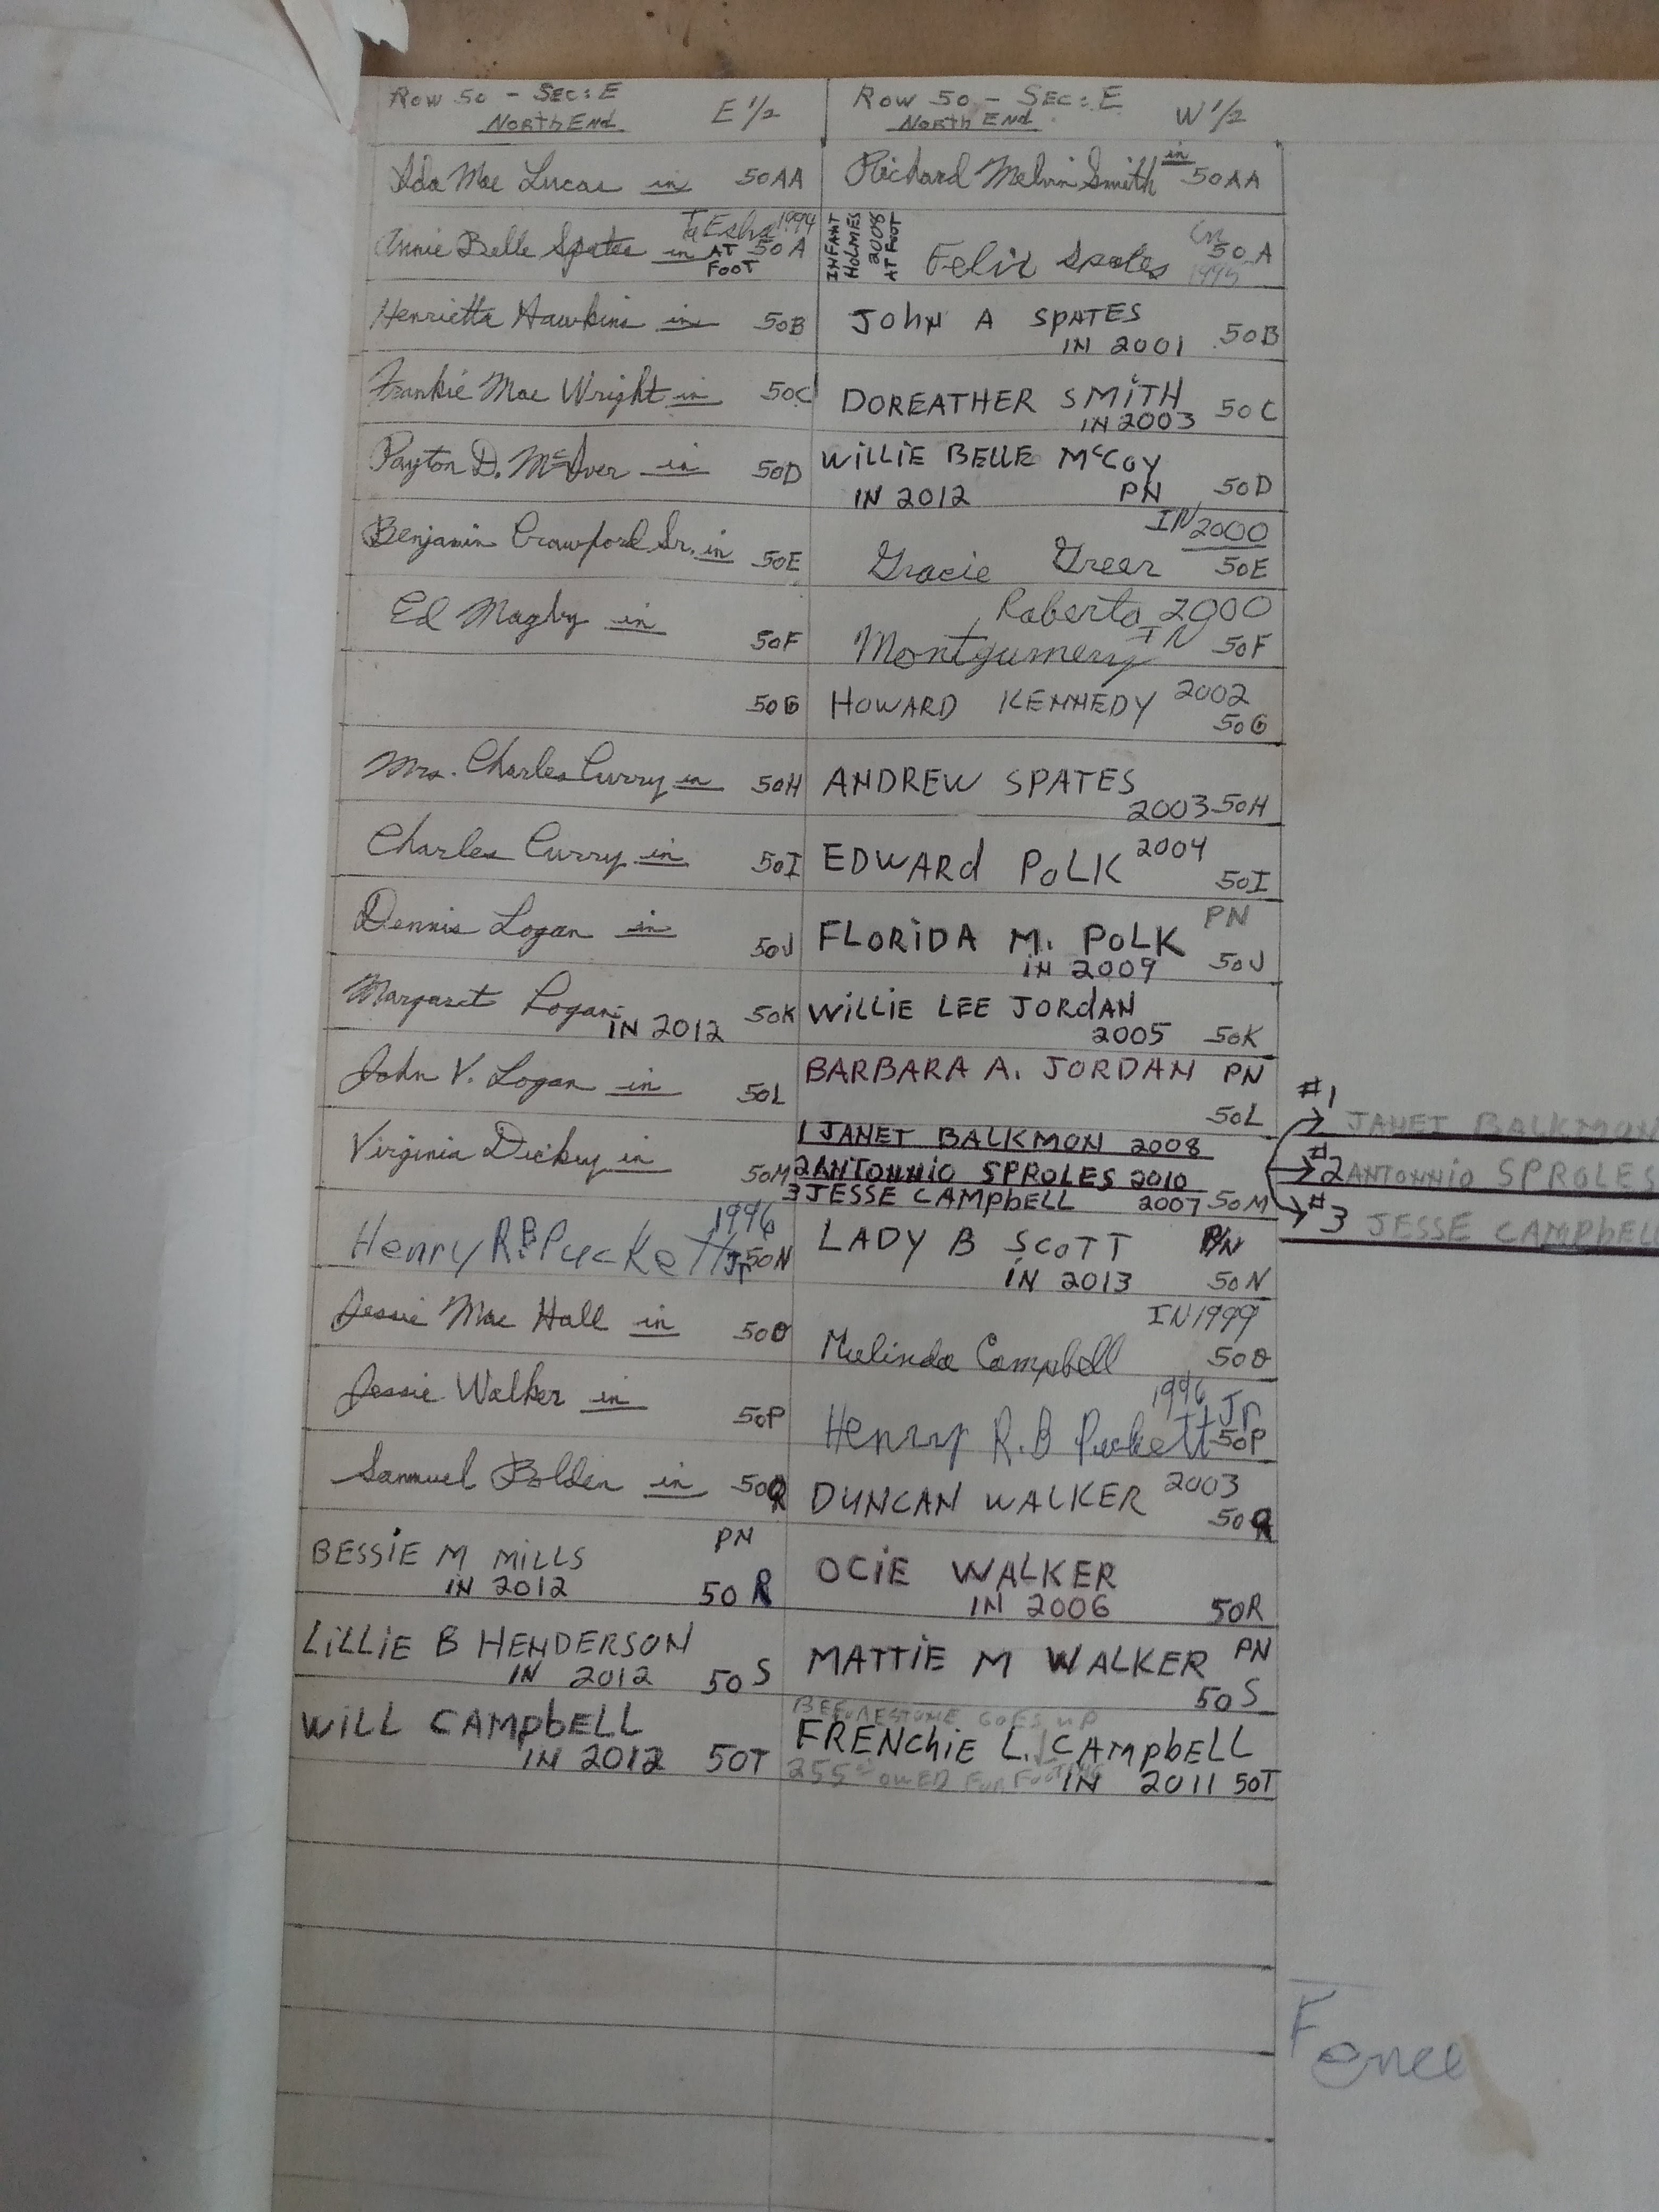 Row 50 - SEC: E
North End
E 1/2
Row 50 - SEC: E
North End
W 1/2
Ida Mae Lucas in 50AA
Richard Melvin Smith in 50AA
TaEsha 1994
Annie Belle Spates in AT 50A
FOOT
INFANT
HOLMES
2008
AT FOOT
Felix Spates in 50A
1995
Henrietta Hawkins in 50B
John A SPATES
IN 2001 50B
Frankie Mae Wright in 50C
DOREATHER SMiTH
IN 2003 50C
Payton D. McIver in 50D
WiLLiE BELLE McCoy
IN 2012 PN 50D
Benjamin Crawford Sr. in 50E
IN 2000
Gracie Greer 50E
Ed Magby in 50F
Roberta 2000
Montgumery IN 50F
50G
HOWARD KENNEDY 2002
50G
Mrs. Charles Curry in 50H
ANDREW SPATES
2003 50H
Charles Curry in 50I
EDWARd PoLK 2004
50I
Dennis Logan in 50J
PN
FLORiDA M. PoLK
iN 2009 50J
Margaret Logan
IN 2012 50K
WiLLiE LEE JORdAN
2005 50K
John V. Logan in 50L
BARBARA A. JORDAN PN
50L
Virginia Dickey in 50M
1 JANET BALKMON 2008
2 ANTONNiO SPROLES 2010
3 JESSE CAMPbELL 2007 50M
#1
JANET BALKMON
#2 ANTONNiO SPROLES
#3 JESSE CAMPbELL
1996
Henry R.B. Puckett Jr 50N
LADY B SCOTT P/N
IN 2013 50N
Jessie Mae Hall in 50O
IN 1999
Mulinda Campbell 50O
Jessie Walker in 50P
1996 Jr
Henry R.B Puckett 50P
Sammuel Bolden in 50Q
DUNCAN WALKER 2003
50Q
BESSiE M MiLLS PN
IN 2012 50R
OCiE WALKER
IN 2006 50R
LiLLiE B HENDERSON
IN 2012 50S
MATTiE M WALKER PN
50S
WiLL CAMPbELL
IN 2012 50T
BEFORE STONE GOES UP
FRENChiE L. CAMPbELL
255 OWED FOR FOOTING
IN 2011 50T
Fence